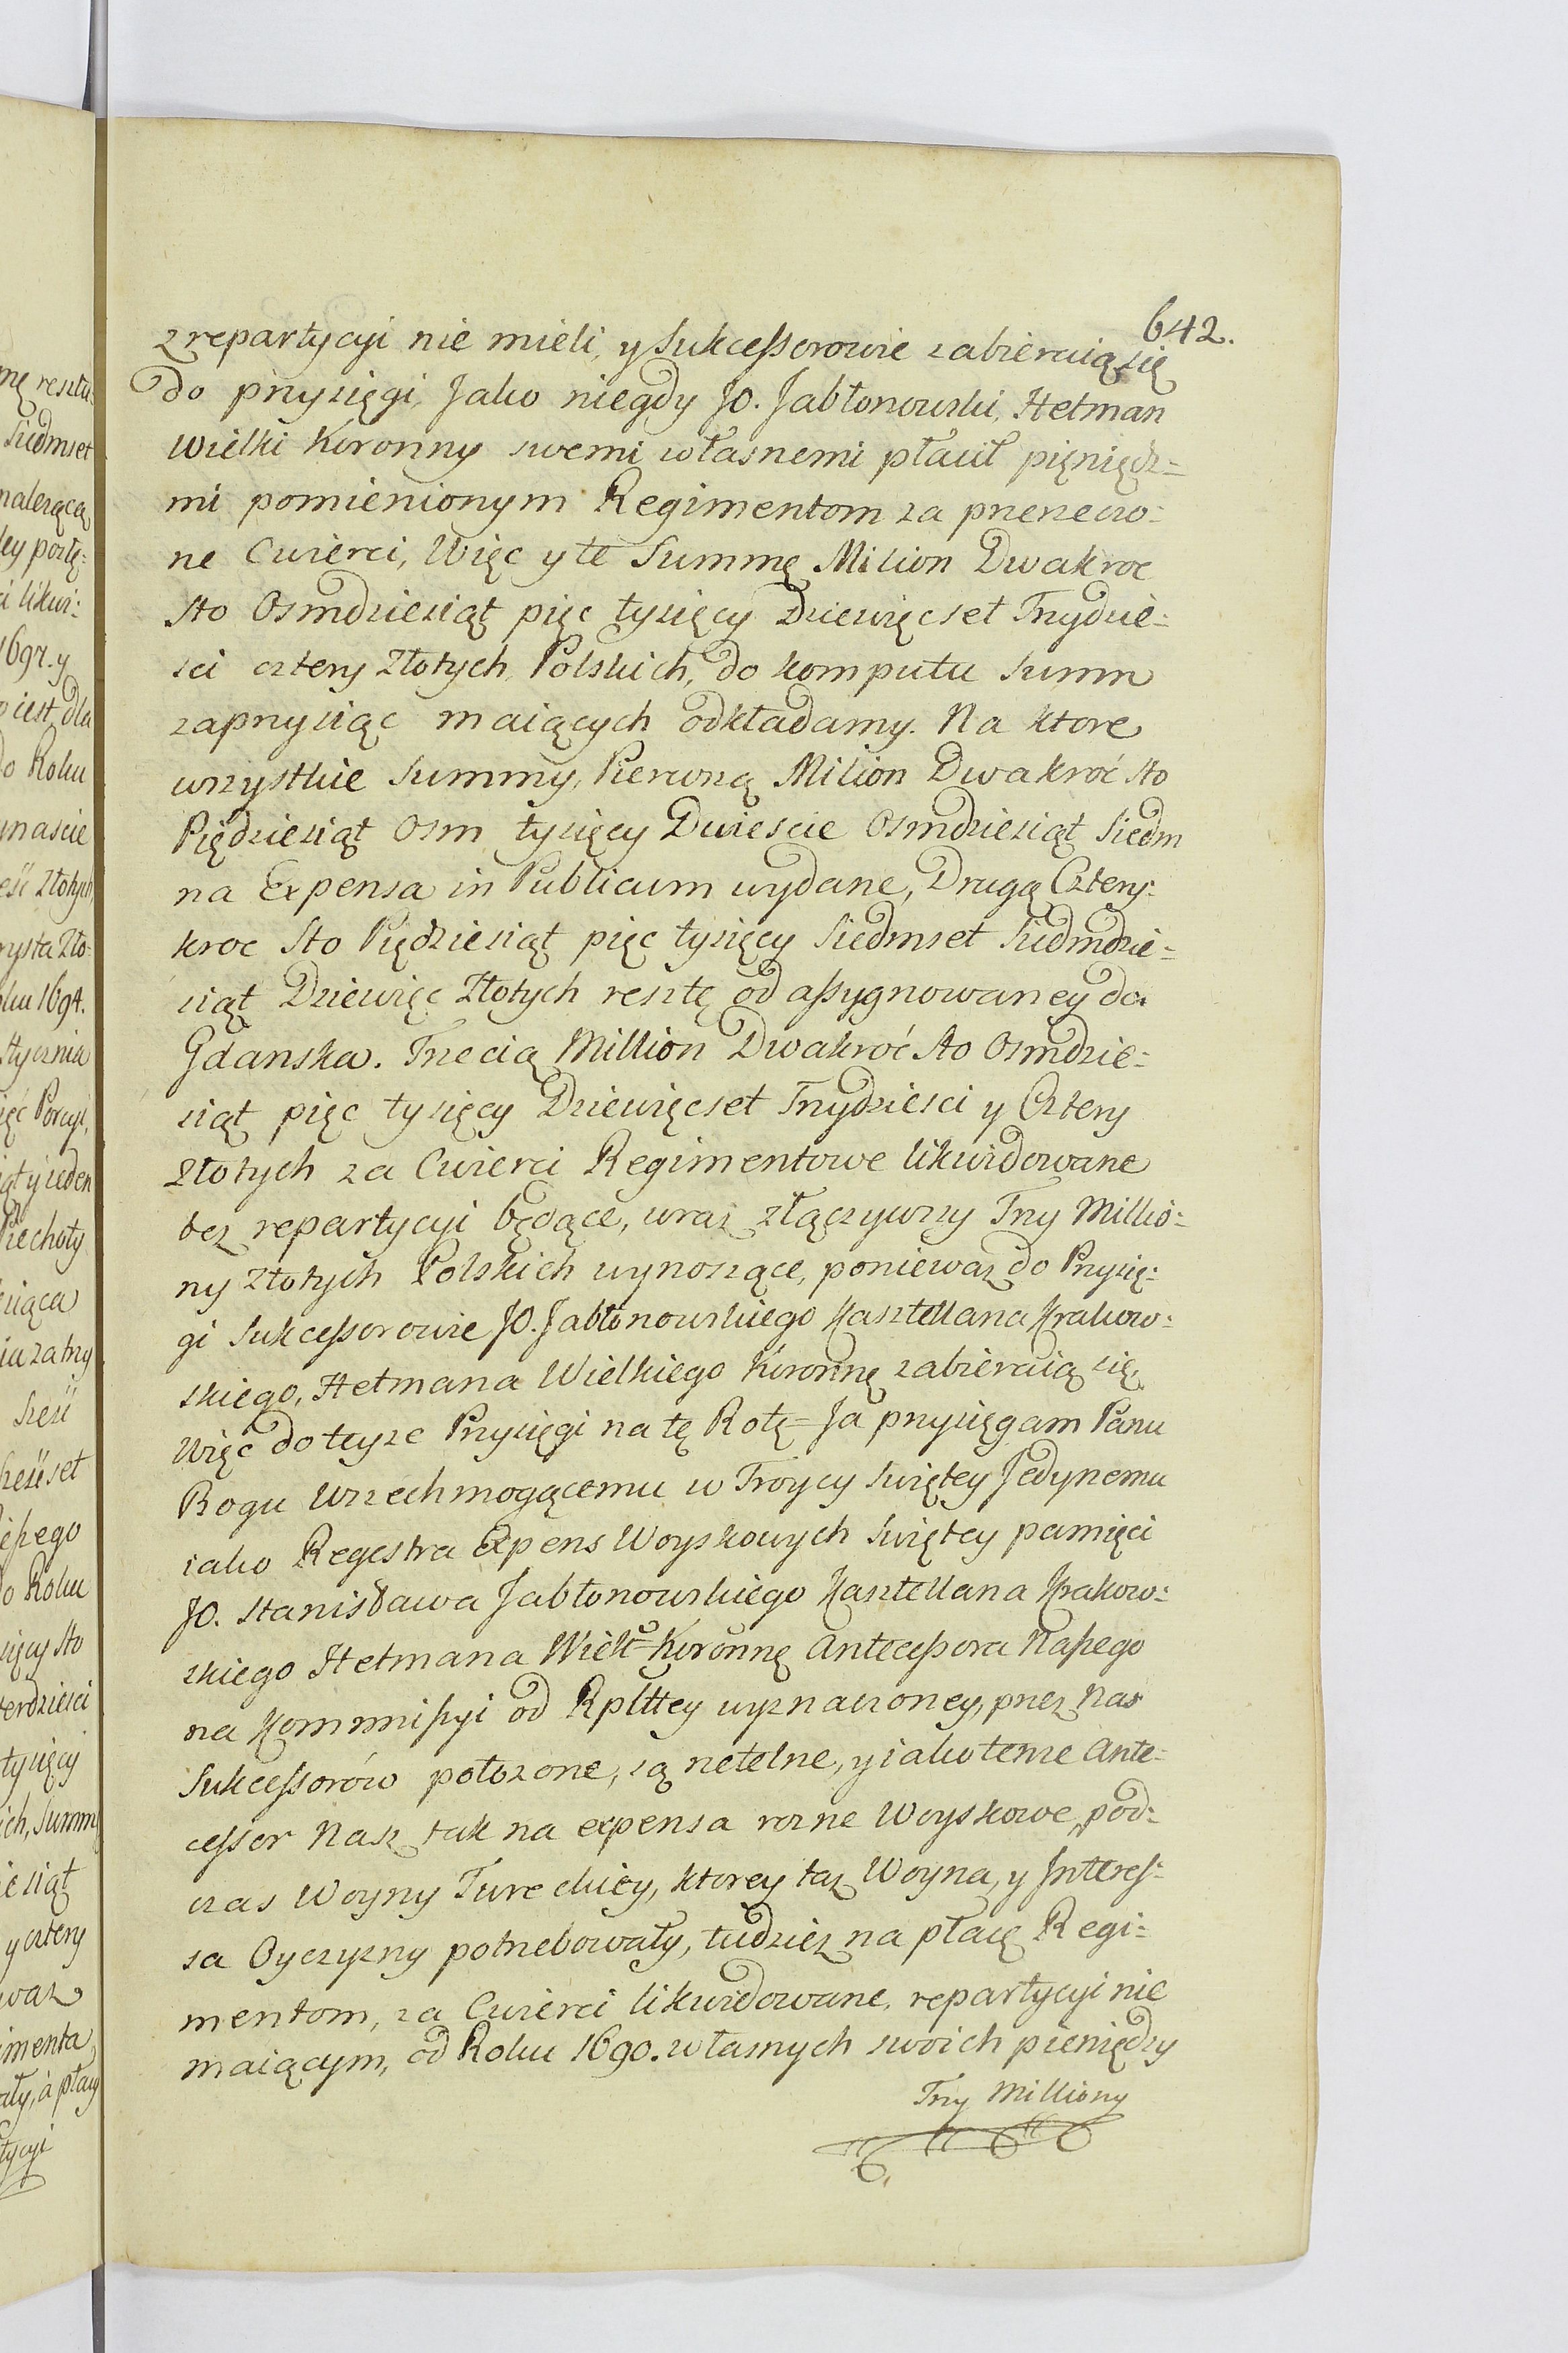 642.
z repartycyi nie mieli, y Sukcessorowie zabieraią się
do przysięgi, Jako niegdy JO. Jabłonowski, Hetman
Wielki Koronny swemi własnemi płacił pięniędz=
mi pomienionym Regimentom za przerzeczo=
ne Cwierci, Więc y te Summę Milion Dwakroc
sto Osmdziesiąt pięc tysięcy Dziewięcset Trzydzie=
sci cztery Złotych Polskich, do komputu Summ
zaprzysiąc maiących odkładamy. Na ktore
wszystkie Summy, Pierwszą Milion Dwakroć sto
Piędziesiąt Osm tysięcy Dwiescie Osmdziesiąt Siedm
na Expensa in Publicum wydane, Drugą Cztery=
kroc Sto Piędziesiąt pięc tysięcy Siedmset Siedmdzie=
siąt Dziewięc Złotych resztę od assygnowaney do
Gdanska. Trzecią Million Dwakroć sto Osmdzie=
siąt pięc tysięcy Dziewięcset Trzydziesci y Cztery
Złotych za Cwierci Regimentowe likwidowane
bez repartycyi będące, wraz złączywszy Trzy Millio=
ny Złotych Polskich wynoszące, poniewaz do Przysię=
gi Sukcessorowie JO. Jabłonowskiego Kasztellana Krakow=
skiego, Hetmana Wielkiego Koronnę zabieraią się,
Więc do teyze Przysięgi na tę Rotę = Ja przysięgam Panu
Bogu Wszechmogącemu w Troycy Swiętey Jedynemu
iako Regestra Expens Woyskowych Swiętey pamięci
JO. Stanisława Jabłonowskiego Kasztellana Krakow=
skiego Hetmana Wielkº Koronnę Antecessora Naszego
na Kommissyi od Rplttey wyznaczoney, przez Nas
Sukcessorów położone, są rzetelne, y iako tenze Ante=
cessor Nasz tak na expensa rozne Woyskowe, pod=
czas Woyny Tureckiey, ktorey taz Woyna, y Interes=
sa Oyczyzny potrzebowały, tudziez na płacę Regi=
mentom, za Cwierci likwidowane, repartycyi nie
maiącym, od Roku 1690. własnych swoich pieniędzy
Trzy Milliony